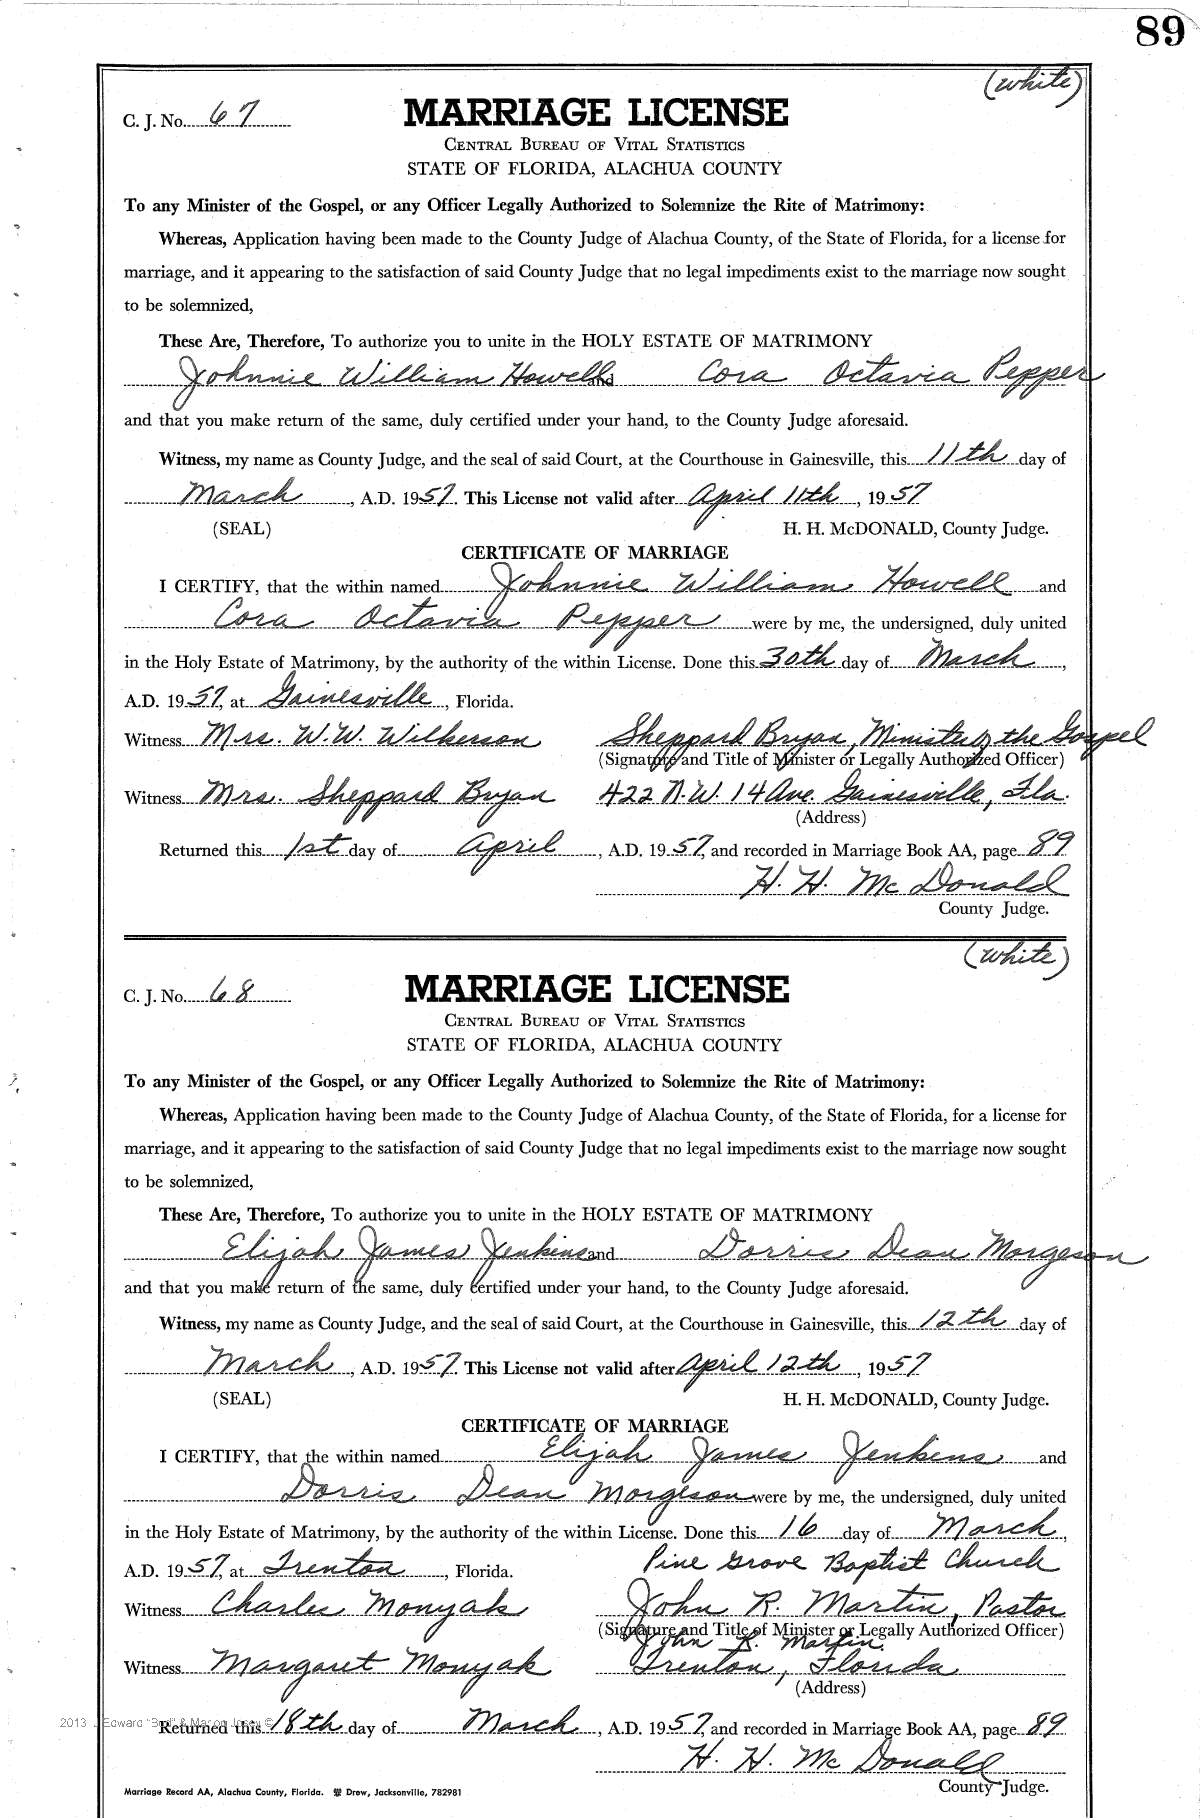 89
(white)
C. J. No. 67
MARRIAGE LICENSE
CENTRAL BUREAU OF VITAL STATISTICS
STATE OF FLORIDA, ALACHUA COUNTY
To any Minister of the Gospel, or any Officer Legally Authorized to Solemnize the Rite of Matrimony:
Whereas, Application having been made to the County Judge of Alachua County, of the State of Florida, for a license for
marriage, and it appearing to the satisfaction of said County Judge that no legal impediments exist to the marriage now sought
to be solemnized,
These Are, Therefore, To authorize you to unite in the HOLY ESTATE OF MATRIMONY
Johnnie William Howell and Cora Octavia Pepper
and that you make return of the same, duly certified under your hand, to the County Judge aforesaid.
Witness, my name as County Judge, and the seal of said Court, at the Courthouse in Gainesville, this 11th day of
March, A.D. 1957. This License not valid after April 11th, 1957
(SEAL) H. H. McDONALD, County Judge.
CERTIFICATE OF MARRIAGE
I CERTIFY, that the within named Johnnie William Howell and
Cora Octavia Pepper were by me, the undersigned, duly united
in the Holy Estate of Matrimony, by the authority of the within License. Done this 30th day of March,
A.D. 1957, at Gainesville, Florida.
Witness Mrs. W.W. Wilkerson Sheppard Bryan, Minister of the Gospel
(Signature and Title of Minister or Legally Authorized Officer)
Witness Mrs. Sheppard Bryan 422 N.W. 14 Ave. Gainesville, Fla.
(Address)
Returned this 1st day of April, A.D. 1957, and recorded in Marriage Book AA, page 89
H. H. McDonald
County Judge.
(white)
C. J. No. 68
MARRIAGE LICENSE
CENTRAL BUREAU OF VITAL STATISTICS
STATE OF FLORIDA, ALACHUA COUNTY
To any Minister of the Gospel, or any Officer Legally Authorized to Solemnize the Rite of Matrimony:
Whereas, Application having been made to the County Judge of Alachua County, of the State of Florida, for a license for
marriage, and it appearing to the satisfaction of said County Judge that no legal impediments exist to the marriage now sought
to be solemnized,
These Are, Therefore, To authorize you to unite in the HOLY ESTATE OF MATRIMONY
Elijah James Jenkins and Dorris Dean Morgeson
and that you make return of the same, duly certified under your hand, to the County Judge aforesaid.
Witness, my name as County Judge, and the seal of said Court, at the Courthouse in Gainesville, this 12th day of
March, A.D. 1957. This License not valid after April 12th, 1957
(SEAL) H. H. McDONALD, County Judge.
CERTIFICATE OF MARRIAGE
I CERTIFY, that the within named Elijah James Jenkins and
Dorris Dean Morgeson were by me, the undersigned, duly united
in the Holy Estate of Matrimony, by the authority of the within License. Done this 16 day of March,
A.D. 1957, at Trenton, Florida. Pine Grove Baptist Church
Witness Charles Monyak John R. Martin, Pastor
(Signature and Title of Minister or Legally Authorized Officer)
John R. Martin
Witness Margaret Monyak Trenton, Florida
(Address)
Returned this 18th day of March, A.D. 1957, and recorded in Marriage Book AA, page 89
H. H. McDonald
County Judge.
Marriage Record AA, Alachua County, Florida. Drew, Jacksonville, 782981